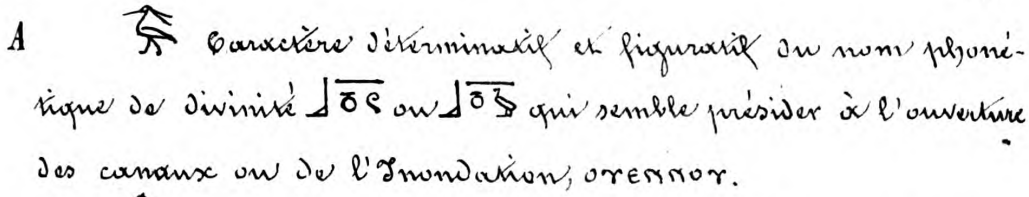 A 𓅣 Caractère déterminatif et figuratif du nom phoné-
tique de divinité ou qui semble présider à l'ouverture
des canaux ou de l'Inondation, ⲟⲩⲉⲛⲛⲟⲩ.